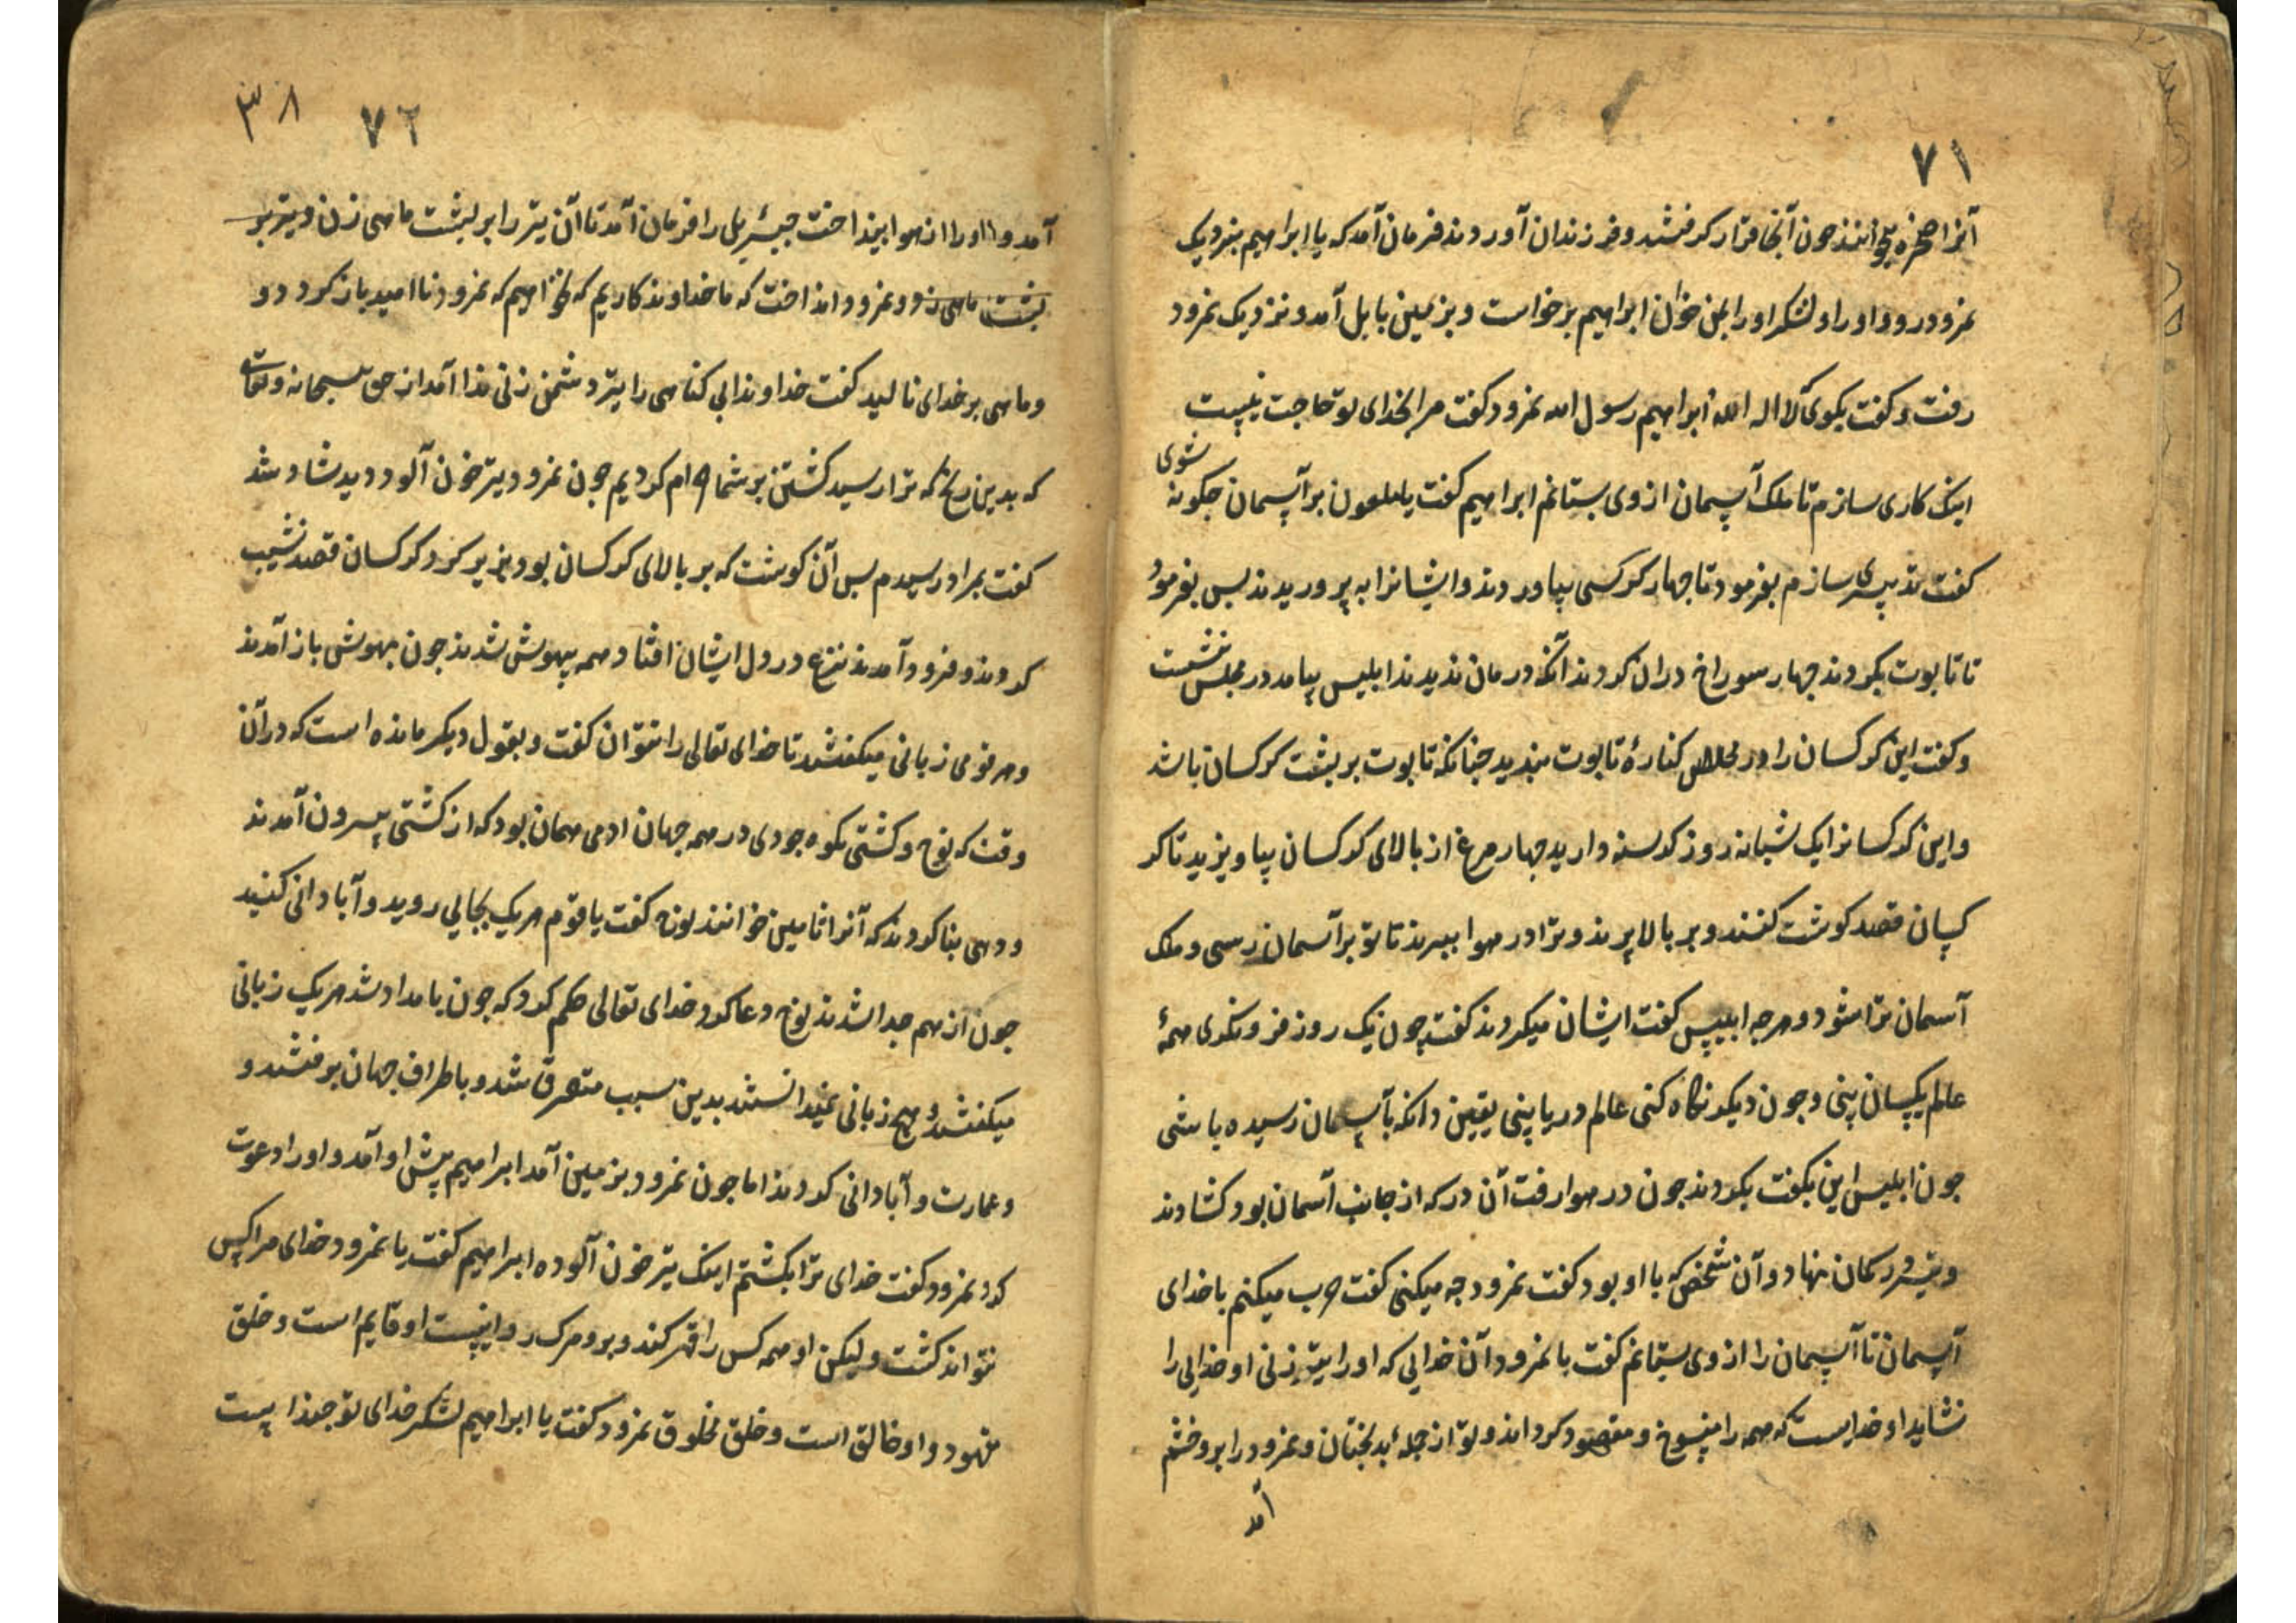 ۷۱
آنرا صخره میخوانند چون آنجا قرار کرفتند و فرزندان آوردند فرمان آمد که یا ابراهیم بنزدیک
نمرود رو و او را و لشکر او را بمن خوان ابراهیم برخواست و بزمین بابل آمد و نزدیک نمرود
رفت و کفت بکوی لا اله الا الله ابراهیم رسول الله نمرود کفت مرا بخدای تو حاجت نیست
اینک کاری سازم تا ملک آسمان از وی بستانم ابراهیم کفت یا ملعون بر آسمان چکونه شوی
کفت تدبیری سازم بفرمود تا چهار کرکسی بیاوردند و ایشانرا به پروریدند بس بفرمود
تا تابوت بکردند چهار سوراخ در ان کردند آنکه درمان ندیدند ابلیس بیامد در مجلس نشست
و کفت این کرکسان را در کنارهٔ تابوت ببندید چنانکه تابوت بر بشت کرکسان باشد
و این کرکسانرا یک شبانه روز کرسنه دارید چهار مرغ از بالای کرکسان بیاویزید تا کر
کسان قصد کوشت کنند و بر بالا پرند و ترا در هوا ببرند تا تو بر آسمان رسی و ملک
آسمان ترا شود و هرچه ابلیس کفت ایشان میکردند کفت چون یک روز فرو نکری همهٔ
عالم یکسان بینی و چون دیکر نکاه کنی عالم دریا بینی یقین دانکه بآسمان رسیده باشی
چون ابلیس این بکفت بکردند چون در هوا رفت آن در که از جانب آسمان بود کشادند
و تیر در کمان نهاد و آن شخص که با او بود کفت نمرود چه میکنی کفت حرب میکنم با خدای
آسمان تا آسمان را از وی بستانم کفت یا نمرود آن خدایی که او را تیر زنی او خدایی را
نشاید او خداییست که همه را و مقصود کرداند و تو از جملهٔ بدبختان و نمرود را برو خشم
آمد
۷۲ ۳۸
آمد و او را از هوا بینداخت جبرئیل را فرمان آمد تا آن تیر را بر بشت ماهی زن و تیر بر
بشت ماهی زد و نمرود انداخت که ما خداوند کاریم که نخواهیم که نمرود ناامید باز کردد و
و ماهی بر خدای نالید کفت خداوندا بی کناهی را بتیر دشمن زنی ندا آمد از حق سبحانه و تعالی
که بدین رنج که ترا رسید کشتن بر شما حرام کردیم چون نمرود تیر خون آلود دید شاد شد
کفت بمراد رسیدم بس آن کوشت که بر بالای کرکسان بود بزیر کرد کرکسان قصد نشیب
کردند و فرود آمدند فزع در دل ایشان افتاد همه بیهوش شدند چون بهوش باز آمدند
و هر قومی زبانی میکفتند تا خدای تعالی را نتوان کفت و بقول دیکر مانده است که در آن
وقت که نوح و کشتی بکوه جودی در همه جهان ادمی همان بود که از کشتی بیرون آمدند
و دهی بنا کردند که آنرا ثمانین خوانند نوح کفت یا قوم هر یک بجایی روید و آبادانی کنید
چون از هم جدا شدند نوح دعا کرد خدای تعالی حکم کرد که چون بامداد شد هر یک زبانی
میکفتند و هیچ زبانی نمیدانستند بدین سبب متفرق شد و باطراف جهان برفتند و
و عمارت و آبادانی کردند اما چون نمرود بزمین آمد ابراهیم پیش او آمد و او را دعوت
کرد نمرود کفت خدای ترا بکشتم اینک تیر خون آلوده ابراهیم کفت یا نمرود خدای مرا کس
نتواند کشت و لیکن او همه کس را قهر کند و برو مرک روا نیست او قایم است و خلق
مقهور و او خالق است و خلق مخلوق نمرود کفت یا ابراهیم لشکر خدای تو چند است